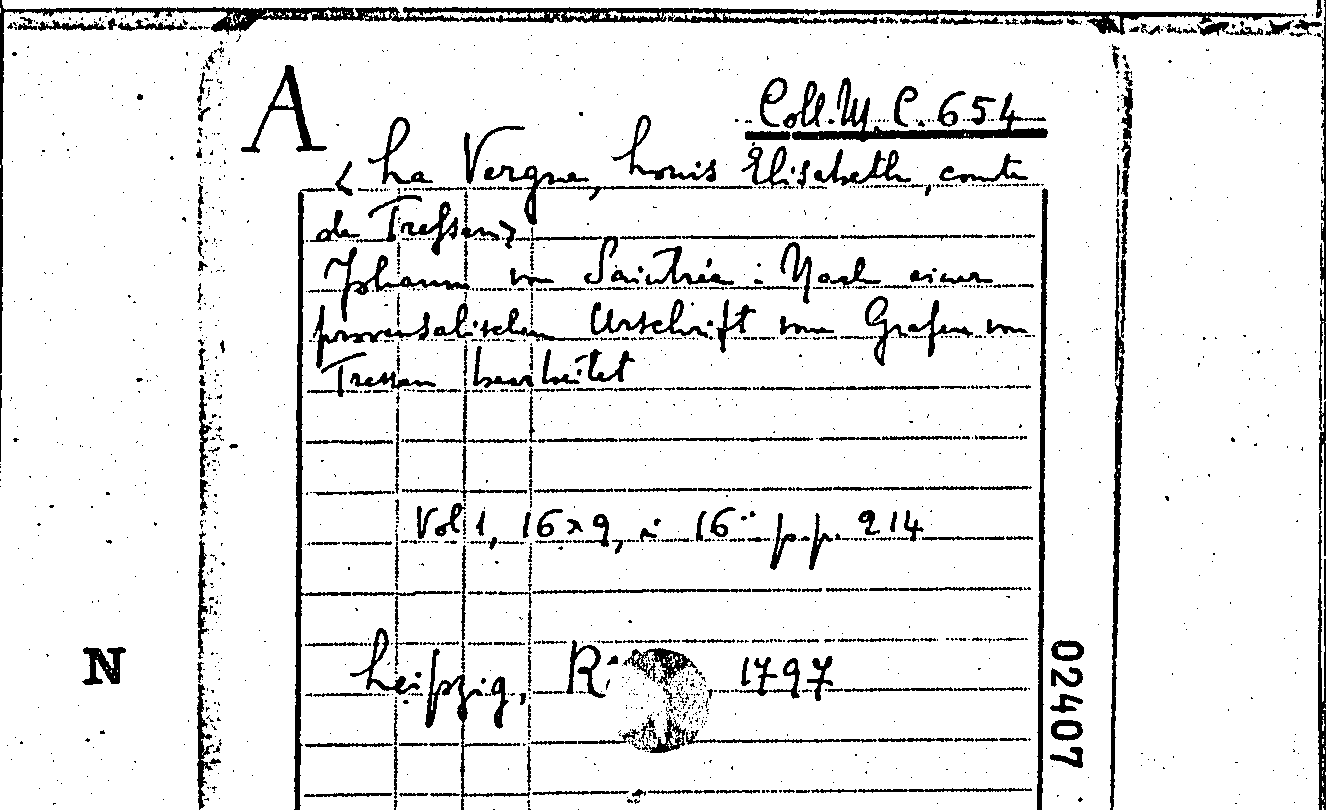 A
Coll. M. C. 654
< La Vergne, Louis Elisabeth, comte
de Tressan>
Johann von Saintrée : Nach einer
provensalischen Urschrift vom Grafen von
Tressan bearbeitet
Vol 1, 16 x 9, i 16° pp. 214
Leipzig, 1797
N
02407